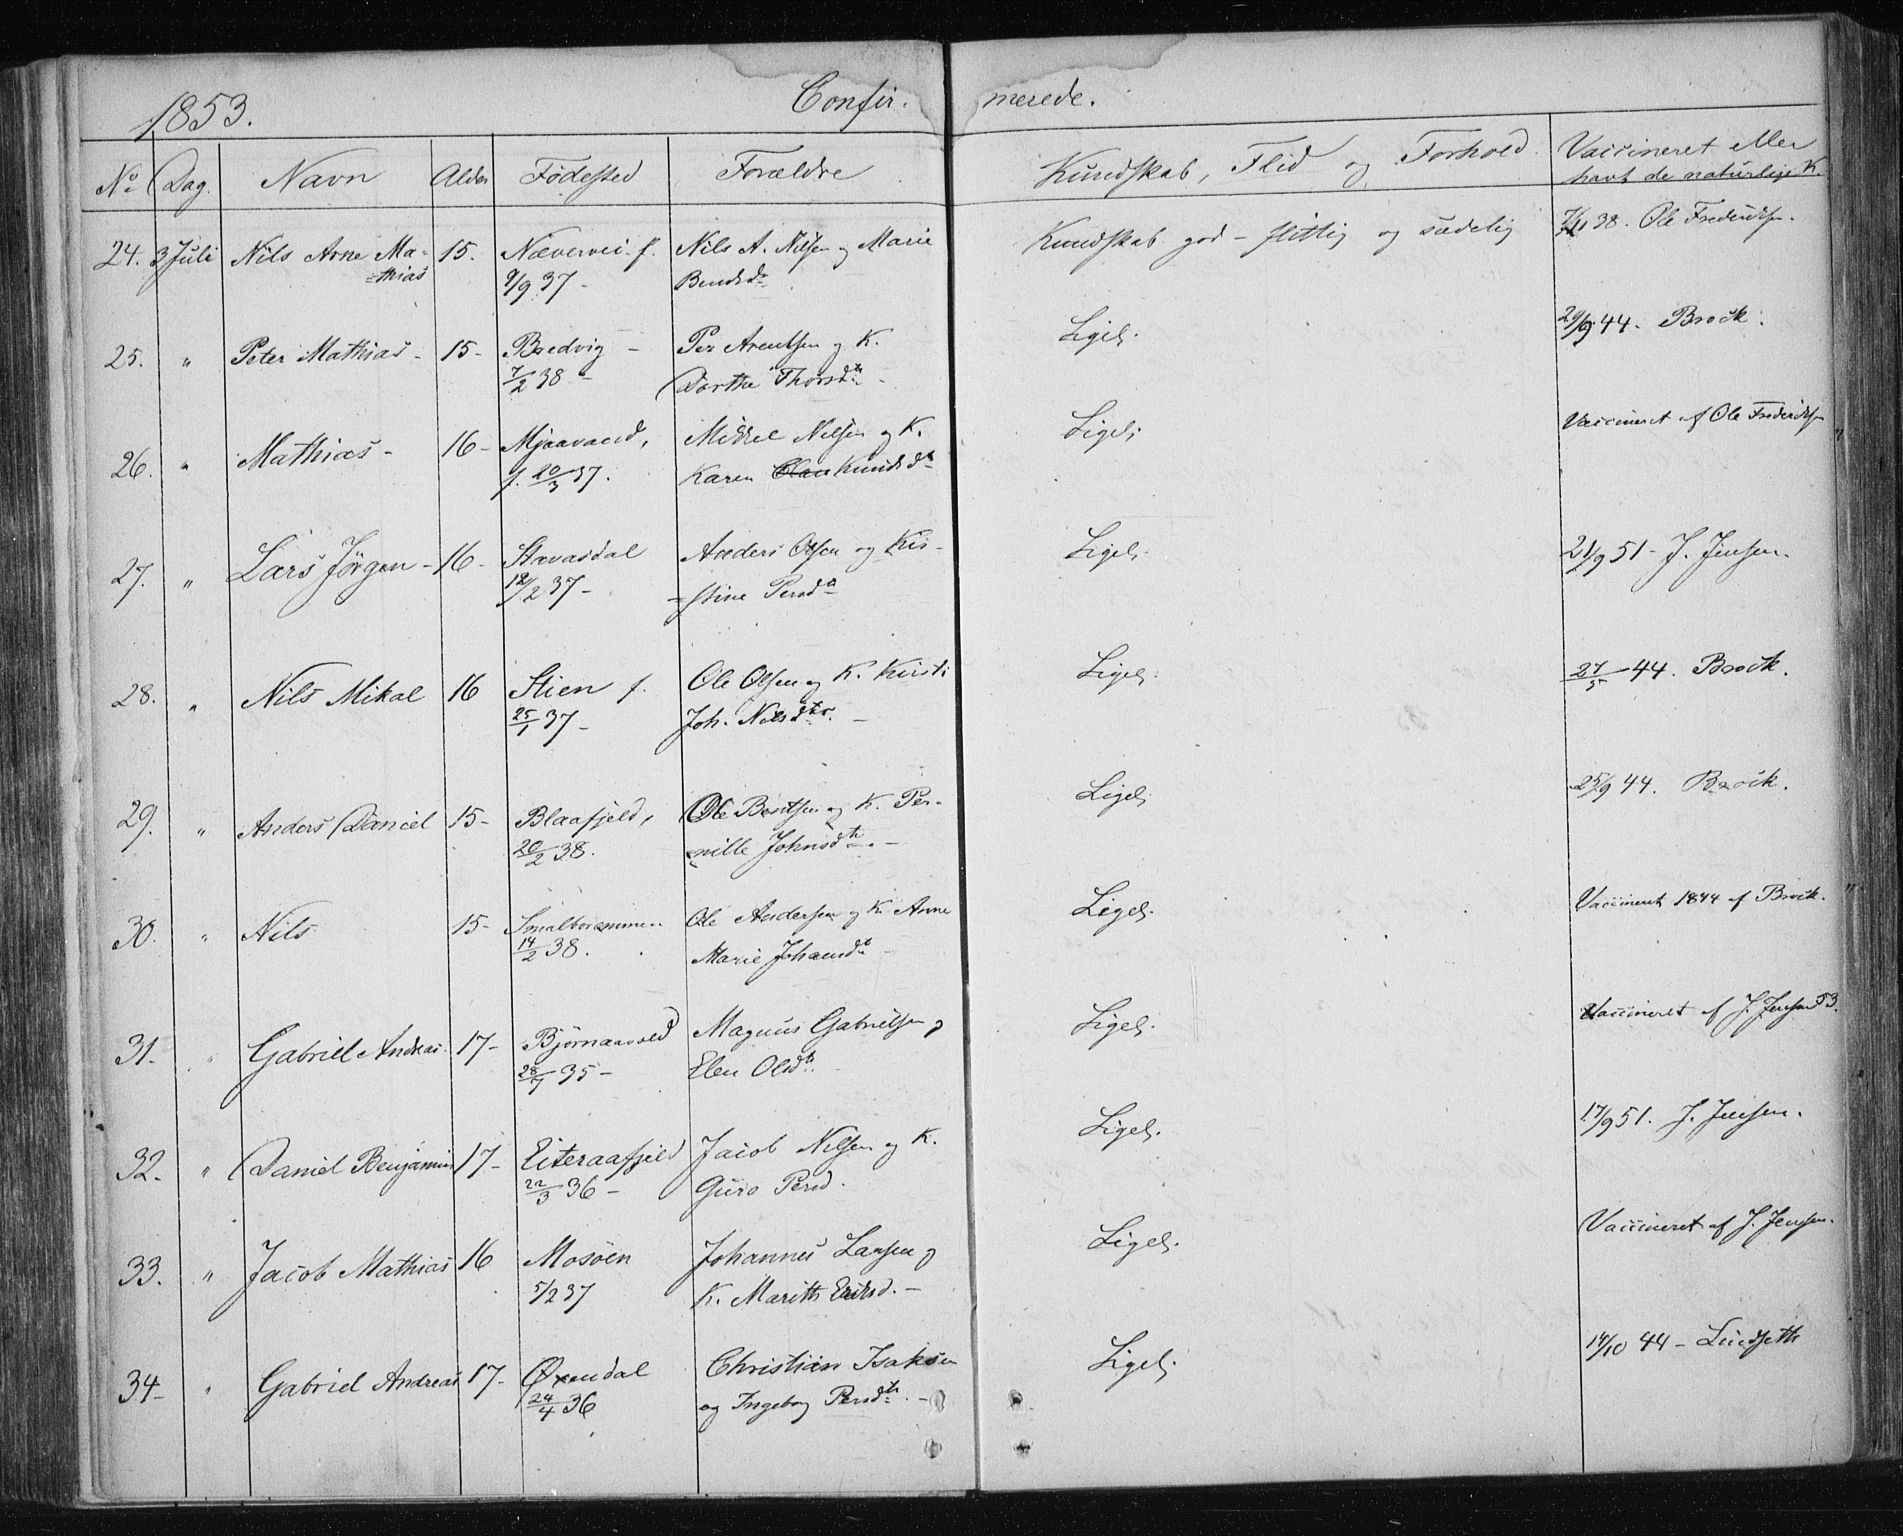 1853. Confir- merede.
No Dag. Navn Alder Fødested Forældre Kundskab, Flid og Forhold Vaccineret eller
havt de naturlige K.
24. 3 Juli Nils Arne Ma- 15. Nævernei f. Nils A. Nilsen og Marie Kundskab god - flittig og sædelig 38. Ole Frederiksen.
=thias 9/9 37 - Bendsd
25. " Peter Mathias - 15 - Bredvig - Per Arentsen og K. Ligel. 29/9 44. Brock.
7/2 38 - Dorthe Thorsdtr -
26. " Mathias - 16 - Mjaavand, Mikkel Nilsen og K. Ligel. Vaccineret af Ole Frederiksen
f. 20/3 37. Karen Knudsdtr
27. " Lars Jørgen - 16 - Stavasdal Anders Olsen og Kir- Ligel. 21/9 51 - J. Jensen.
12/2 37 - =stine Persd
28. " Nils Mikal 16 Stien f. Ole Olsen og K. Kirsti Ligel. 27/5 44. Brock.
25/1 37 - Joh. Nilsdtr. -
29. " Anders Daniel 15 - Blaafjeld, Ole Bentsen og K. Per- Ligel. 25/9 44. Brock.
20/2 38. =nille Johnsdtr. -
30. " Nils 15 - Ole Andersen og K. Anne Ligel. Vaccineret 1844 af Brock. "
14/2 38. Marie Johansd -
31. " Gabriel Andreas. 17 - Bjørnaavold Magnus Gabrielsen og Ligel. Vaccineret af J. Jensen 53.
28/7 35 - Elen Olsdtr.
32. " Daniel Benjamin 17 - Eiteraafjeld Jacob Nilsen og K. Ligel. 17/9 51. J. Jensen.
22/3 36 - Guro Persd.
33. " Jacob Mathias 16 Mosøen Johannes Larsen og Ligel. Vaccineret af J. Jensen.
5/2 37 K. Marith Eriksd. -
34 - " Gabriel Andreas 17 - Øxendal Christian Isaksen Ligel. 14/10 44 - Lindseth
24/4 36 og Ingeborg Persdtr. -